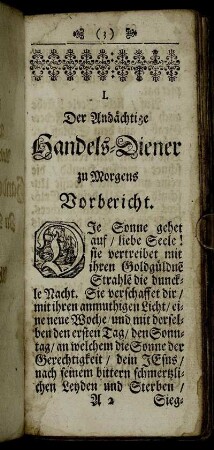 ( 3 )
I.
Der Andächtige
Handels-Diener
zu Morgens
Vorbericht.
DIe Sonne gehet
auf / liebe Seele!
sie vertreibet mit
ihren Goldgüldnē
Strahlē die dunck-
le Nacht. Sie verschaffet dir /
mit ihren anmuthigen Licht / ei-
ne neue Woche / und mit dersel-
ben den ersten Tag / den Sonn-
tag / an welchem die Sonne der
Gerechtigkeit / dein JEsus /
nach seinem bittern schmertzli-
chen Leyden und Sterben /
A 2 Sieg-